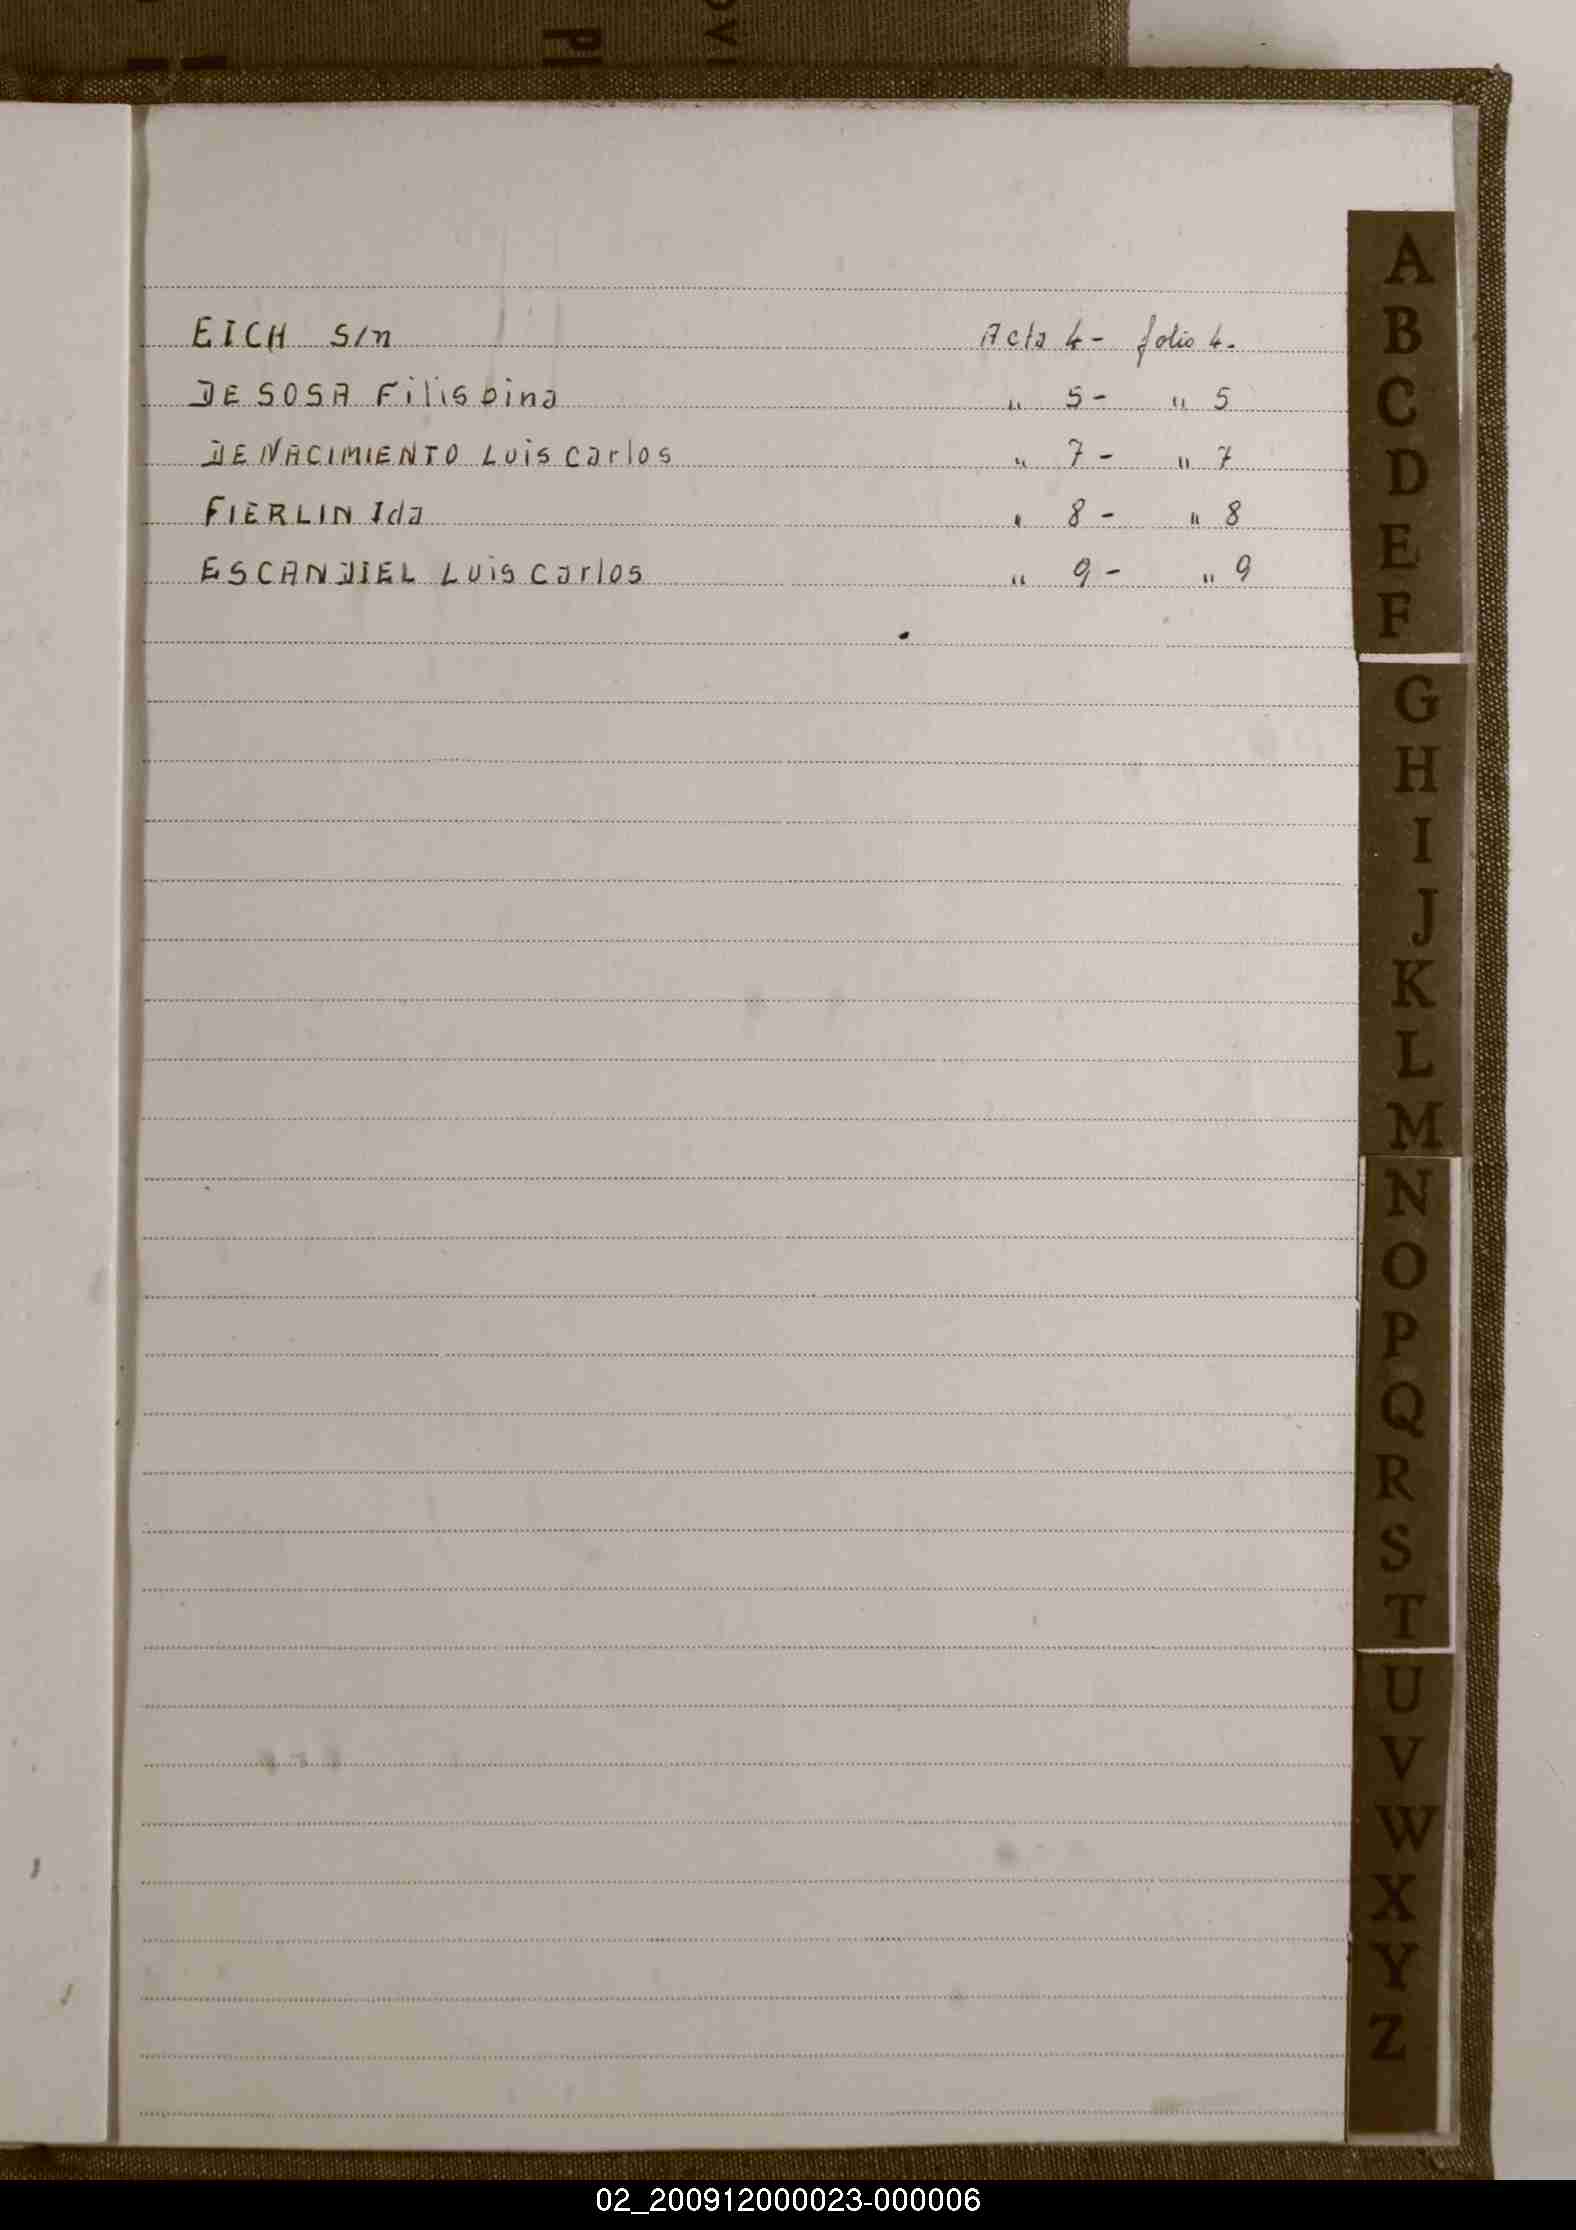 EICH S/n Acta 4- folio 4.
DE SOSA Filisbina " 5- " 5
DE NACIMIENTO Luis Carlos " 7- " 7
FIERLIN Ida " 8- " 8
ESCANDIEL Luis Carlos " 9- " 9
A
B
C
D
E
F
G
H
I
J
K
L
M
N
O
P
Q
R
S
T
U
V
W
X
Y
Z
02_200912000023-000006